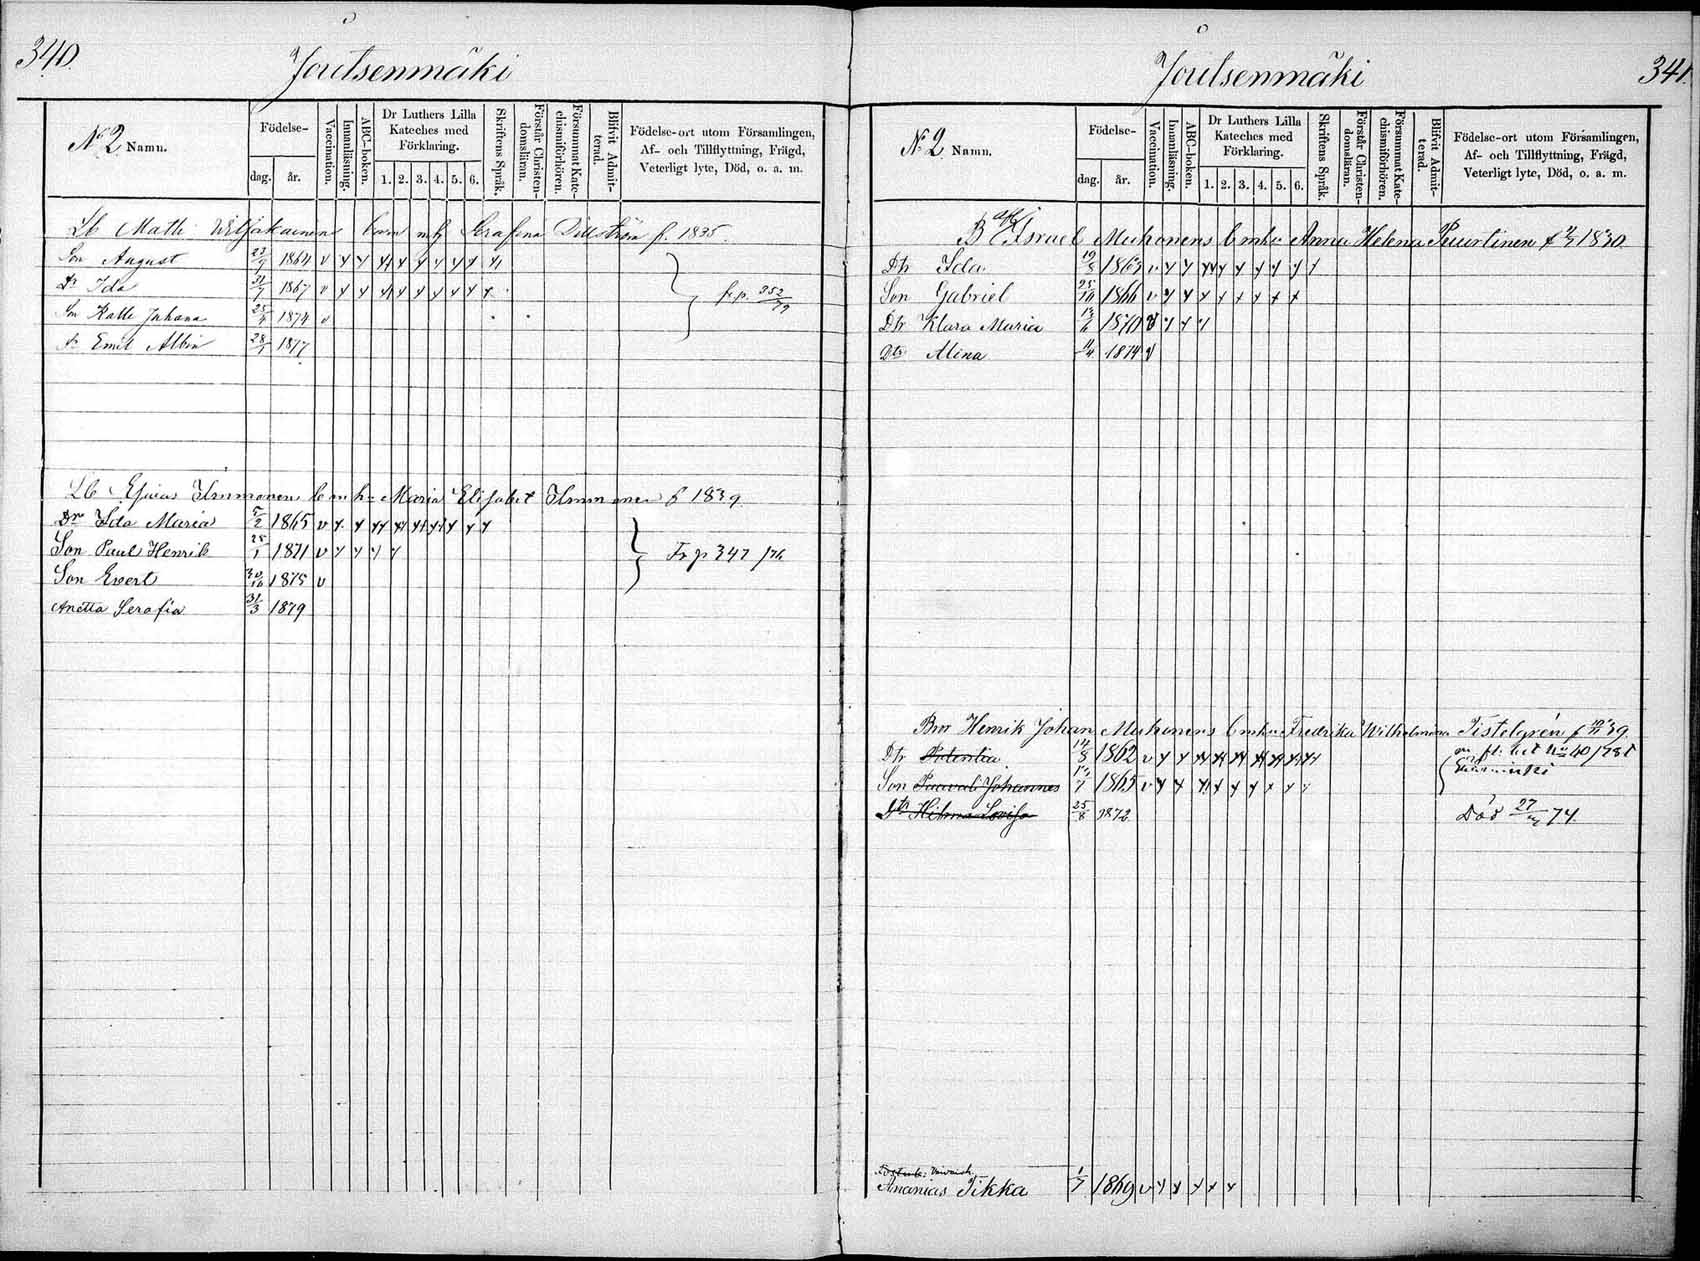 340.
Joutsenmäki
No 2 Namn.
Födelse-
dag.
år.
Vaccination.
Innanläsning.
ABC-boken.
Dr Luthers Lilla
Kateches med
Förklaring.
1. 2. 3. 4. 5. 6.
Skriftens Språk.
Förstår Christen-
domsläran.
Försummat Kate-
chismiförhören.
Blifvit Admit-
terad.
Födelse-ort utom Församlingen,
Af- och Tillflyttning, Frägd,
Veterligt lyte, Död, o. a. m.
Lb Matti Wiljakainens barn Serafina f. 1835.
Son August 23/9 1864 v
Dr Ida 31/7 1867 v fr p. 352/79
Son Kalle Juhana 25/4 1874 v
Emil Albin 28/1 1877
Lb Immonens b m h Maria Elisabet Immonen f 1839
Dr Ida Maria 5/2 1865 v
Son Paul Henrik 25/1 1871 v Fr p 347
Son Evert 30/10 1875 v
Anetta Serafia 31/3 1879
341.
Joutsenmäki
No 2 Namn.
Födelse-
dag.
år.
Vaccination.
Innanläsning.
ABC-boken.
Dr Luthers Lilla
Kateches med
Förklaring.
1. 2. 3. 4. 5. 6.
Skriftens Språk.
Förstår Christen-
domsläran.
Försummat Kate-
chismiförhören.
Blifvit Admit-
terad.
Födelse-ort utom Församlingen,
Af- och Tillflyttning, Frägd,
Veterligt lyte, Död, o. a. m.
B Israel Muhonens b m hu Anna Helena Puurtinen 1830
Dtr Ida 19/5 1863 v
Son Gabriel 25/10 1866 v
Dtr Klara Maria 13/6 1870 v
Dtr Alina 11/4 1874 v
Bror Henrik Johan Muhonens b m hu Fredrika Wilhelmina Tistelgrén f 39
Dtr Potentia 14/8 1862 v
Son Paavali Johannes 1865 v
Dtr Hilma Lovisa 25/8 1872 Död 27/ 74.
Ananias Tikka 1/7 1869 v